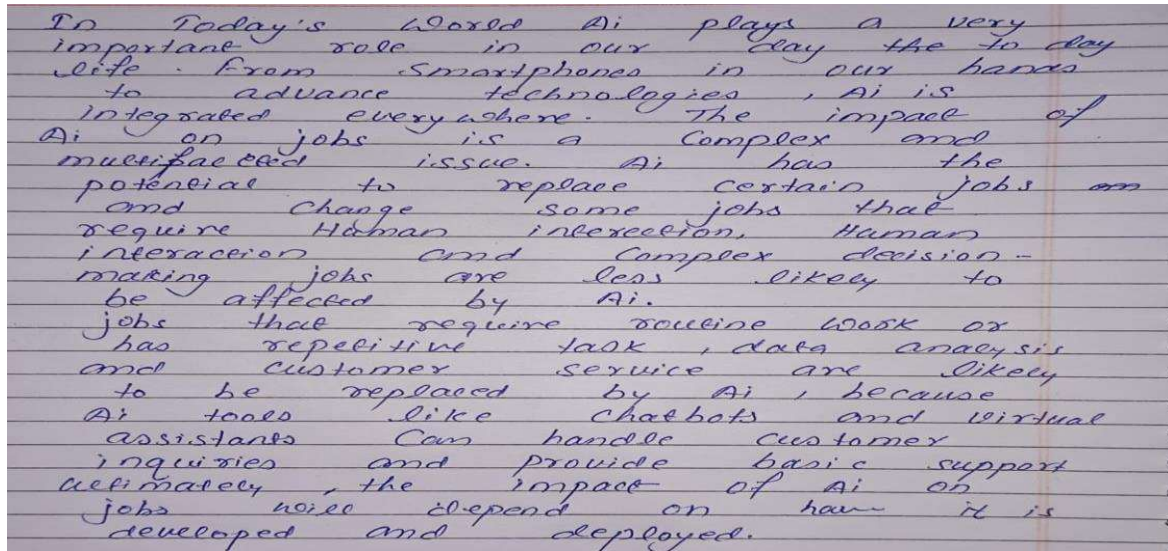 In Today's World Ai plays a very
important role in our day the to day
life. From Smartphones in our hands
to advance technologies, Ai is
integrated everywhere. The impact of
Ai on jobs is a Complex and
multifaceted issue. Ai has the
potential to replace certain jobs an
and Change some jobs that
require Human intereection, Human
interaction and Complex decision-
making jobs are less likely to
be affected by Ai.
jobs that require routine work or
has repetitive task, data analysis
and customer service are likely
to be replaced by Ai, because
Ai tools like Chatbots and virtual
assistants Can handle customer
inquiries and provide basic support
ultimately, the impact of Ai on
jobs will depend on how it is
developed and deployed.